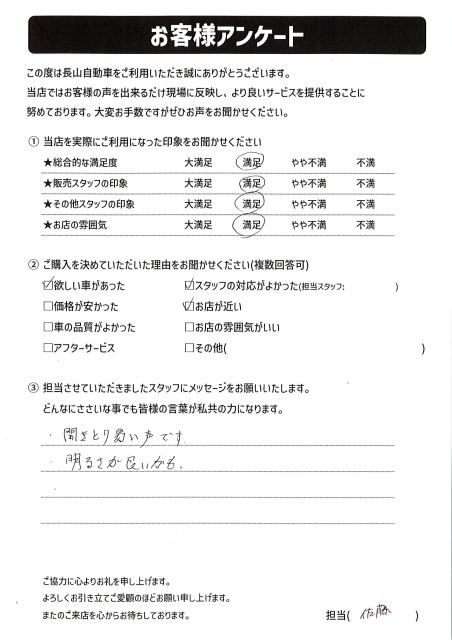 お客様アンケート
この度は長山自動車をご利用いただき誠にありがとうございます。
当店ではお客様の声を出来るだけ現場に反映し、より良いサービスを提供することに
努めております。大変お手数ですがぜひお声をお聞かせください。
① 当店を実際にご利用になった印象をお聞かせください
★総合的な満足度 大満足 満足 やや不満 不満
★販売スタッフの印象 大満足 満足 やや不満 不満
★その他スタッフの印象 大満足 満足 やや不満 不満
★お店の雰囲気 大満足 満足 やや不満 不満
② ご購入を決めていただいた理由をお聞かせください(複数回答可)
☑欲しい車があった ☑スタッフの対応がよかった(担当スタッフ: )
□価格が安かった ☑お店が近い
□車の品質がよかった □お店の雰囲気がいい
□アフターサービス □その他( )
③ 担当させていただきましたスタッフにメッセージをお願いいたします。
どんなにささいな事でも皆様の言葉が私共の力になります。
・聞きとり易い声です
・明るさが良いかも、
ご協力に心よりお礼を申し上げます。
よろしくお引き立てご愛顧のほどお願い申し上げます。
またのご来店を心からお待ちしております。
担当( 佐藤 )